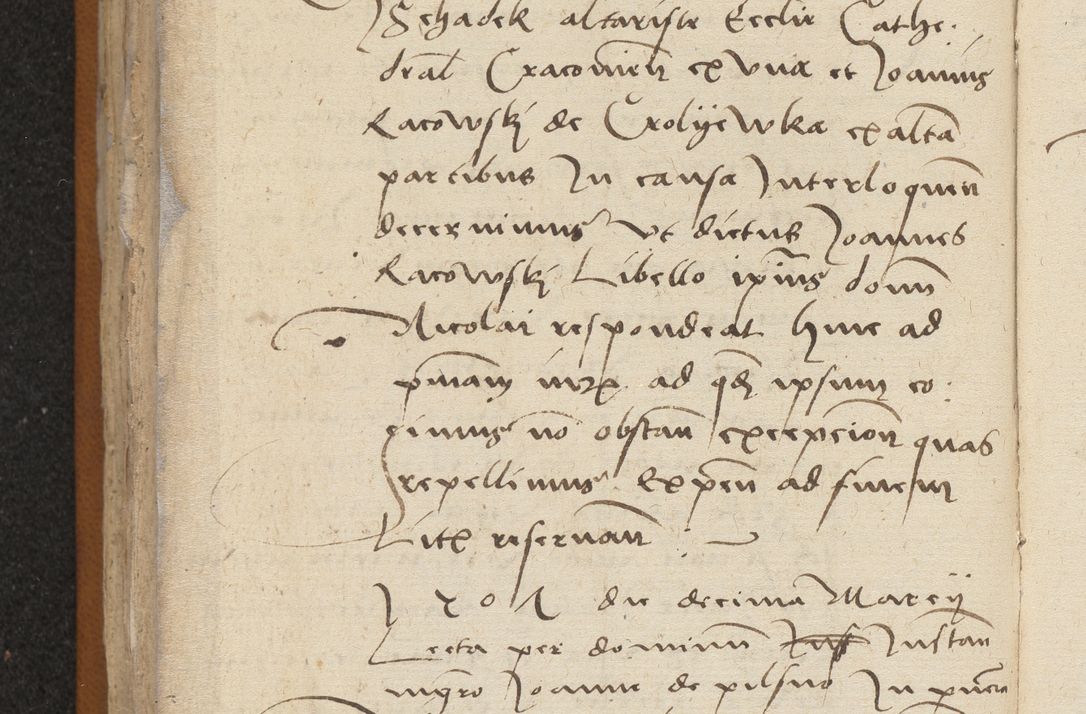 Schadek altariste Ecclie Cathe.
dral Cracovien ex vna et Joannis
Racowskj de Crolyewka ex altera
partibus In causa Interloquen
decernimus vt dictus Joannes
Racowskj Libello ipius domi
Nicolai respondeat hinc ad
pmam iure ad qd ipsum co.
gimus no obstan excepcion quas
repellimus Expen ad finem
Litis reservan
1 5 0 1 die decima Marcij
Lecta per dominum Instan
mgro Joanne de pilsno In pncia